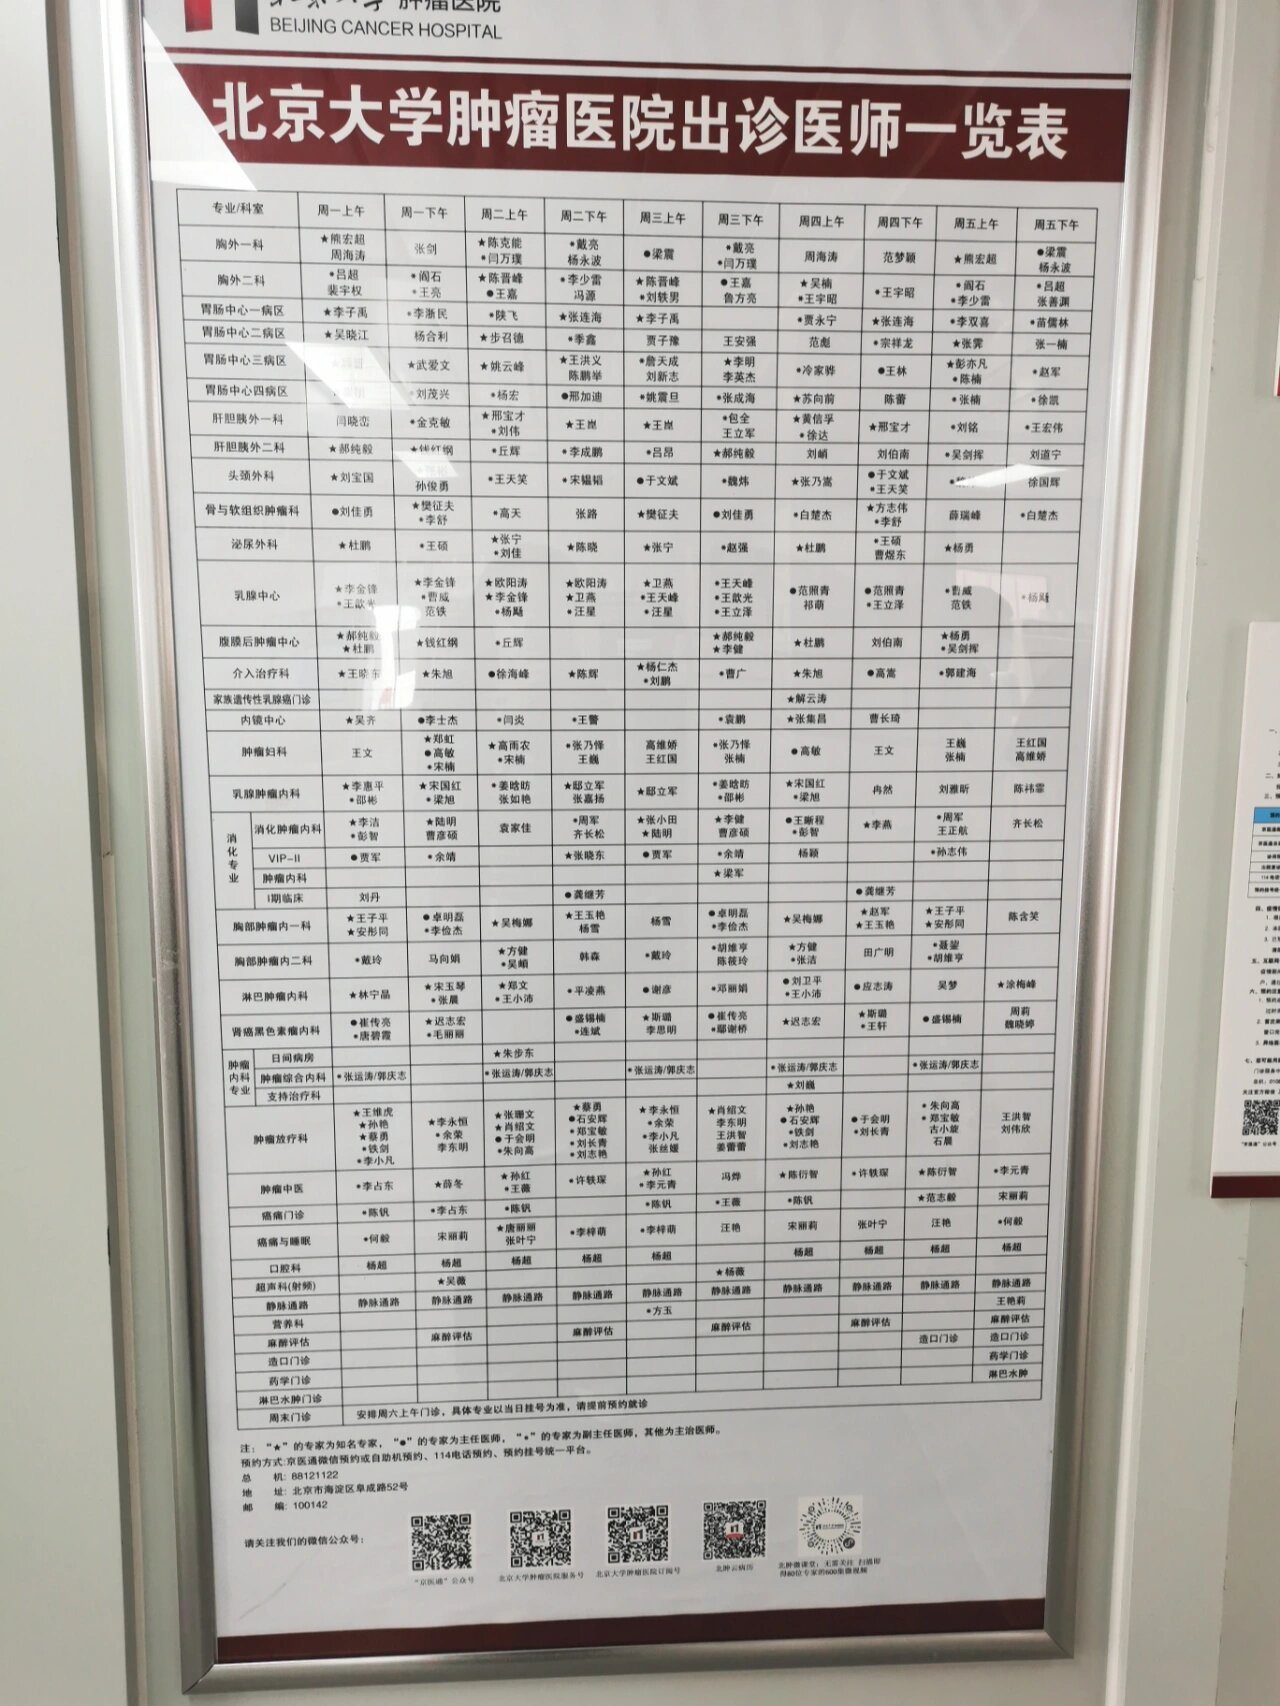 肿瘤医院
BEIJING CANCER HOSPITAL
北京大学肿瘤医院出诊医师一览表
专业/科室 周一上午 周一下午 周二上午 周二下午 周三上午 周三下午 周四上午 周四下午 周五上午 周五下午
胸外一科 ★熊宏超 张剑 ★陈克能 *戴亮 ●梁震 *戴亮 周海涛 范梦颖 ★熊宏超 ●梁震
周海涛 *闫万璞 杨永波 *闫万璞 杨永波
胸外二科 *吕超 *阎石 ★陈晋峰 *李少雷 ★陈晋峰 ●王嘉 ★吴楠 *王宇昭 *阎石 *吕超
裴宇权 *王亮 ●王嘉 冯源 *刘轶男 鲁方亮 *王宇昭 *李少雷 张善渊
胃肠中心一病区 ★李子禹 *李浙民 *陕飞 ★张连海 ★李子禹 *贾永宁 ★张连海 *李双喜 *苗儒林
胃肠中心二病区 ★吴晓江 杨合利 ★步召德 *季鑫 贾子豫 王安强 范彪 *宗祥龙 ★张霁 张一楠
胃肠中心三病区 ★武爱文 ★姚云峰 ★王洪义 *詹天成 ★李明 *冷家骅 ●王林 ★彭亦凡 *赵军
陈鹏举 刘新志 李英杰 *陈楠
胃肠中心四病区 *刘茂兴 *杨宏 ●邢加迪 *姚震旦 *张成海 ★苏向前 陈蕾 *张楠 *徐凯
肝胆胰外一科 闫晓峦 *金克敏 ★邢宝才 ★王崑 ★王崑 *包全 ★黄信孚 ★邢宝才 *刘铭 *王宏伟
*刘伟 王立军 *徐达
肝胆胰外二科 ★郝纯毅 ★钱红纲 *丘辉 *李成鹏 *吕昂 ★郝纯毅 刘峭 刘伯南 *吴剑挥 刘道宁
头颈外科 ★刘宝国 孙俊勇 *王天笑 *宋韫韬 ●于文斌 *魏炜 ★张乃嵩 ●于文斌 徐国辉
*王天笑
骨与软组织肿瘤科 ●刘佳勇 ★樊征夫 *高天 张路 ★樊征夫 ●刘佳勇 *白楚杰 ★方志伟 薛瑞峰 *白楚杰
*李舒 *李舒
泌尿外科 ★杜鹏 *王硕 ★张宁 ★陈晓 ★张宁 *赵强 ★杜鹏 *王硕 ★杨勇
*刘佳 曹煜东
乳腺中心 ★李金锋 ★李金锋 ★欧阳涛 ★欧阳涛 ★卫燕 *王天峰 ●范照青 ●范照青 *曹威 *杨飚
*王歆光 *曹威 ★李金锋 ★卫燕 *王天峰 *王歆光 祁萌 *王立泽 范铁
范铁 *杨飚 *汪星 *汪星 *王立泽
腹膜后肿瘤中心 ★郝纯毅 ★钱红纲 *丘辉 ★郝纯毅 ★杜鹏 刘伯南 ★杨勇
★杜鹏 ★李健 *吴剑挥
介入治疗科 ★王晓东 ★朱旭 ●徐海峰 ★陈辉 ★杨仁杰 *曹广 ★朱旭 ●高嵩 *郭建海
*刘鹏
家族遗传性乳腺癌门诊 ★解云涛
内镜中心 ★吴齐 ●李士杰 *闫炎 *王警 *袁鹏 ★张集昌 曹长琦
肿瘤妇科 王文 ★郑虹 ★高雨农 *张乃怿 高维娇 *张乃怿 ●高敏 王文 王巍 王红国
●高敏 *宋楠 王巍 王红国 张楠 张楠 高维娇
*宋楠
乳腺肿瘤内科 ★李惠平 ★宋国红 *姜晗昉 ★邸立军 ★邸立军 *姜晗昉 ★宋国红 冉然 刘雅昕 陈祎霏
*邵彬 *梁旭 张如艳 张嘉扬 *邵彬 *梁旭
消化专业
消化肿瘤内科 ★李洁 ★陆明 袁家佳 *周军 ★张小田 ★李健 ●王晰程 ★李燕 *周军 齐长松
*彭智 曹彦硕 齐长松 ★陆明 曹彦硕 *彭智 王正航
VIP-II ●贾军 *余靖 ★张晓东 ●贾军 *余靖 杨颖 *孙志伟
肿瘤内科 ★梁军
I期临床 刘丹 ●龚继芳 ●龚继芳
胸部肿瘤内一科 ★王子平 ●卓明磊 ★吴梅娜 ★王玉艳 杨雪 ●卓明磊 ★吴梅娜 ★赵军 ★王子平 陈含笑
★安彤同 *李俭杰 杨雪 *李俭杰 ★王玉艳 ★安彤同
胸部肿瘤内二科 *戴玲 马向娟 ★方健 韩森 *戴玲 *胡维亨 ★方健 田广明 *聂鋆
*吴嵮 陈筱玲 *张洁 *胡维亨
淋巴肿瘤内科 ★林宁晶 ★宋玉琴 ★郑文 *平凌燕 ●谢彦 *邓丽娟 ●刘卫平 ●应志涛 吴梦 ★涂梅峰
*张晨 *王小沛 *王小沛
肾癌黑色素瘤内科 ●崔传亮 ★迟志宏 ●盛锡楠 ★斯璐 ●崔传亮 ★迟志宏 ★斯璐 ●盛锡楠 周莉
*唐碧霞 *毛丽丽 *连斌 李思明 *鄢谢桥 *王轩 魏晓婷
肿瘤内科专业
日间病房 ★朱步东
肿瘤综合内科 *张运涛/郭庆志 *张运涛/郭庆志 *张运涛/郭庆志 *张运涛/郭庆志 *张运涛/郭庆志
支持治疗科 ★刘巍
肿瘤放疗科 ★王维虎 ★李永恒 ★张珊文 ★蔡勇 ★李永恒 ★肖绍文 ★孙艳 ●于会明 *朱向高 王洪智
★孙艳 *余荣 ★肖绍文 ●石安辉 *余荣 李东明 ●石安辉 *刘长青 *郑宝敏 刘伟欣
★蔡勇 李东明 ●于会明 *郑宝敏 *李小凡 王洪智 *铁剑 古小旋
*铁剑 *朱向高 *刘长青 张丝媛 姜蕾蕾 *刘志艳 石晨
*李小凡 *刘志艳
肿瘤中医 *李占东 ★薛冬 ★孙红 *许轶琛 ★孙红 冯烨 ★陈衍智 *许轶琛 ★陈衍智 *李元青
*王薇 *李元青
癌痛门诊 *陈钒 *李占东 *陈钒 *陈钒 *王薇 *陈钒 ★范志毅 宋丽莉
癌痛与睡眠 *何毅 宋丽莉 ★唐丽丽 *李梓萌 *李梓萌 汪艳 宋丽莉 张叶宁 汪艳 *何毅
张叶宁
口腔科 杨超 杨超 杨超 杨超 杨超 杨超 杨超 杨超 杨超
超声科(射频) ★吴薇 ★杨薇
静脉通路 静脉通路 静脉通路 静脉通路 静脉通路 静脉通路 静脉通路 静脉通路 静脉通路 静脉通路 静脉通路
营养科 *方玉 王艳莉
麻醉评估 麻醉评估 麻醉评估 麻醉评估 麻醉评估 麻醉评估
造口门诊 造口门诊 造口门诊
药学门诊 药学门诊
淋巴水肿门诊 淋巴水肿
周末门诊 安排周六上午门诊，具体专业以当日挂号为准，请提前预约就诊
注：“★”的专家为知名专家，“●”的专家为主任医师，“*”的专家为副主任医师，其他为主治医师。
预约方式:京医通微信预约或自助机预约、114电话预约、预约挂号统一平台。
总 机: 88121122
地 址: 北京市海淀区阜成路52号
邮 编: 100142
请关注我们的微信公众号：
“京医通”公众号 北京大学肿瘤医院服务号 北京大学肿瘤医院订阅号 北肿云病历 北肿微课堂：无需关注 扫描即
得80位专家的600集微视频